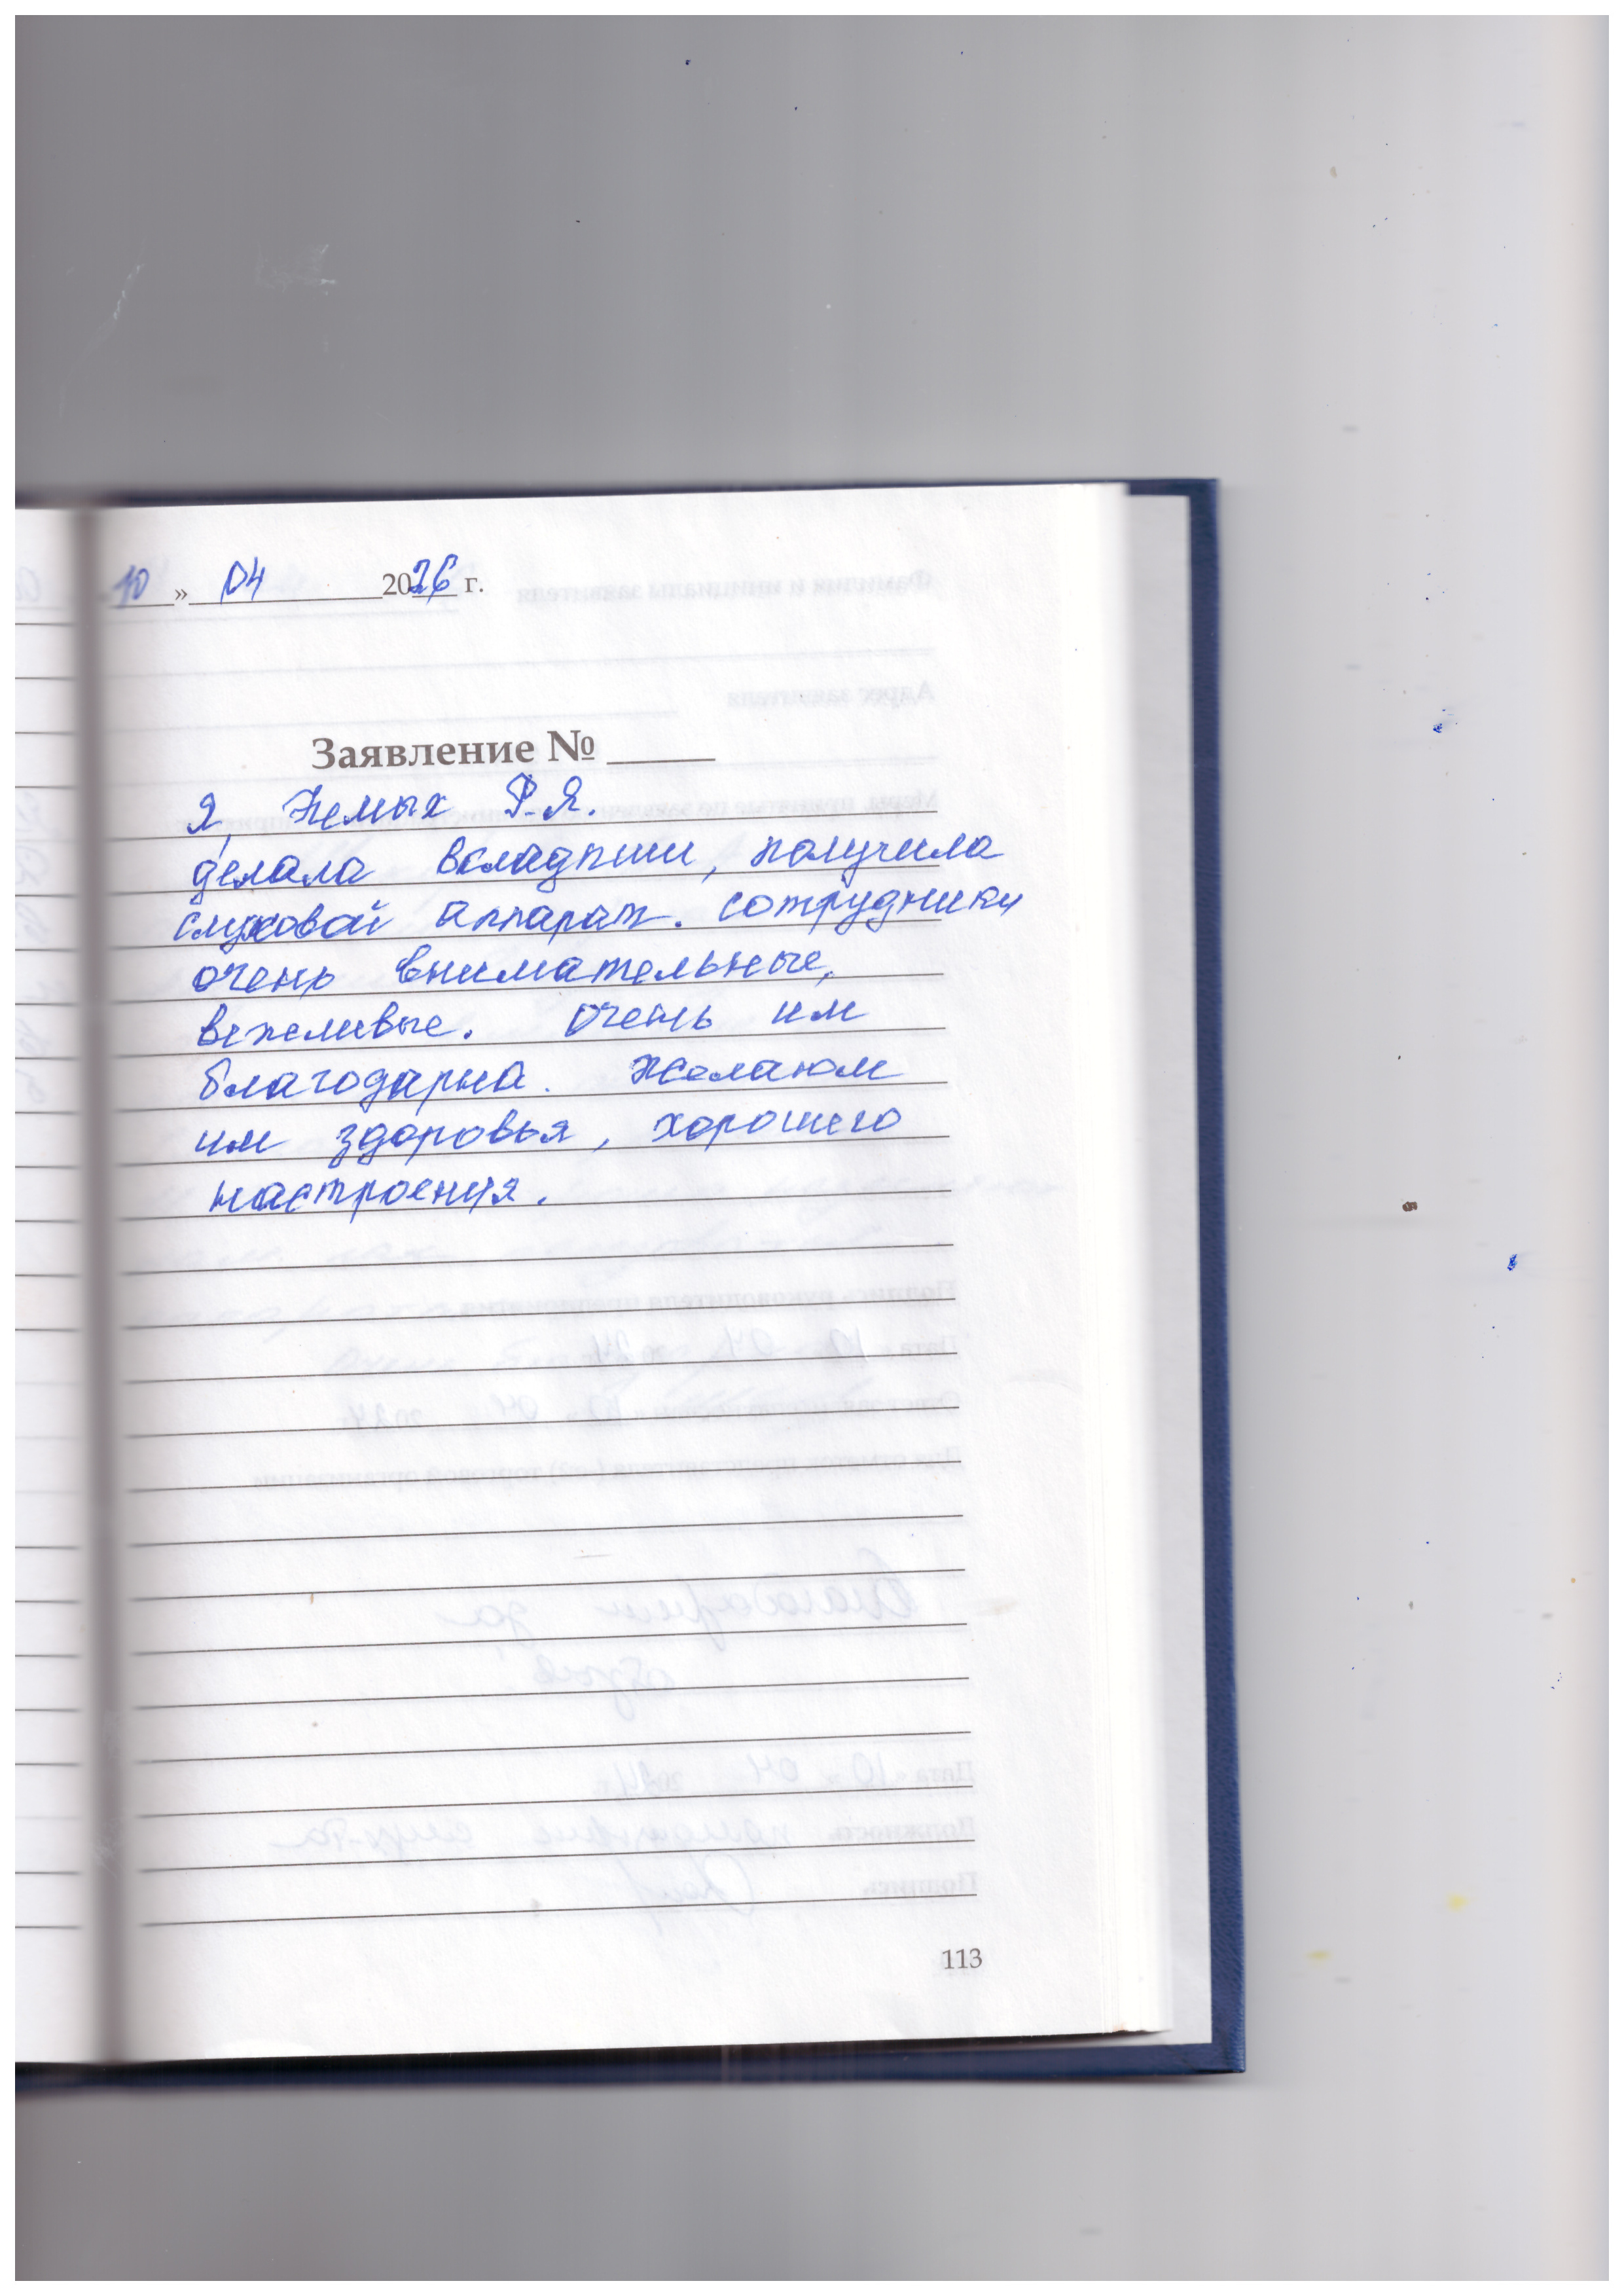 10 » 04 2026 г.
Заявление № ____
Я, Немых Р.Я.
делала вкладыши, получила
слуховой аппарат. сотрудники
очень внимательные,
вежливые. Очень им
благодарна. Желаюм
им здоровья, хорошего
настроения.
113